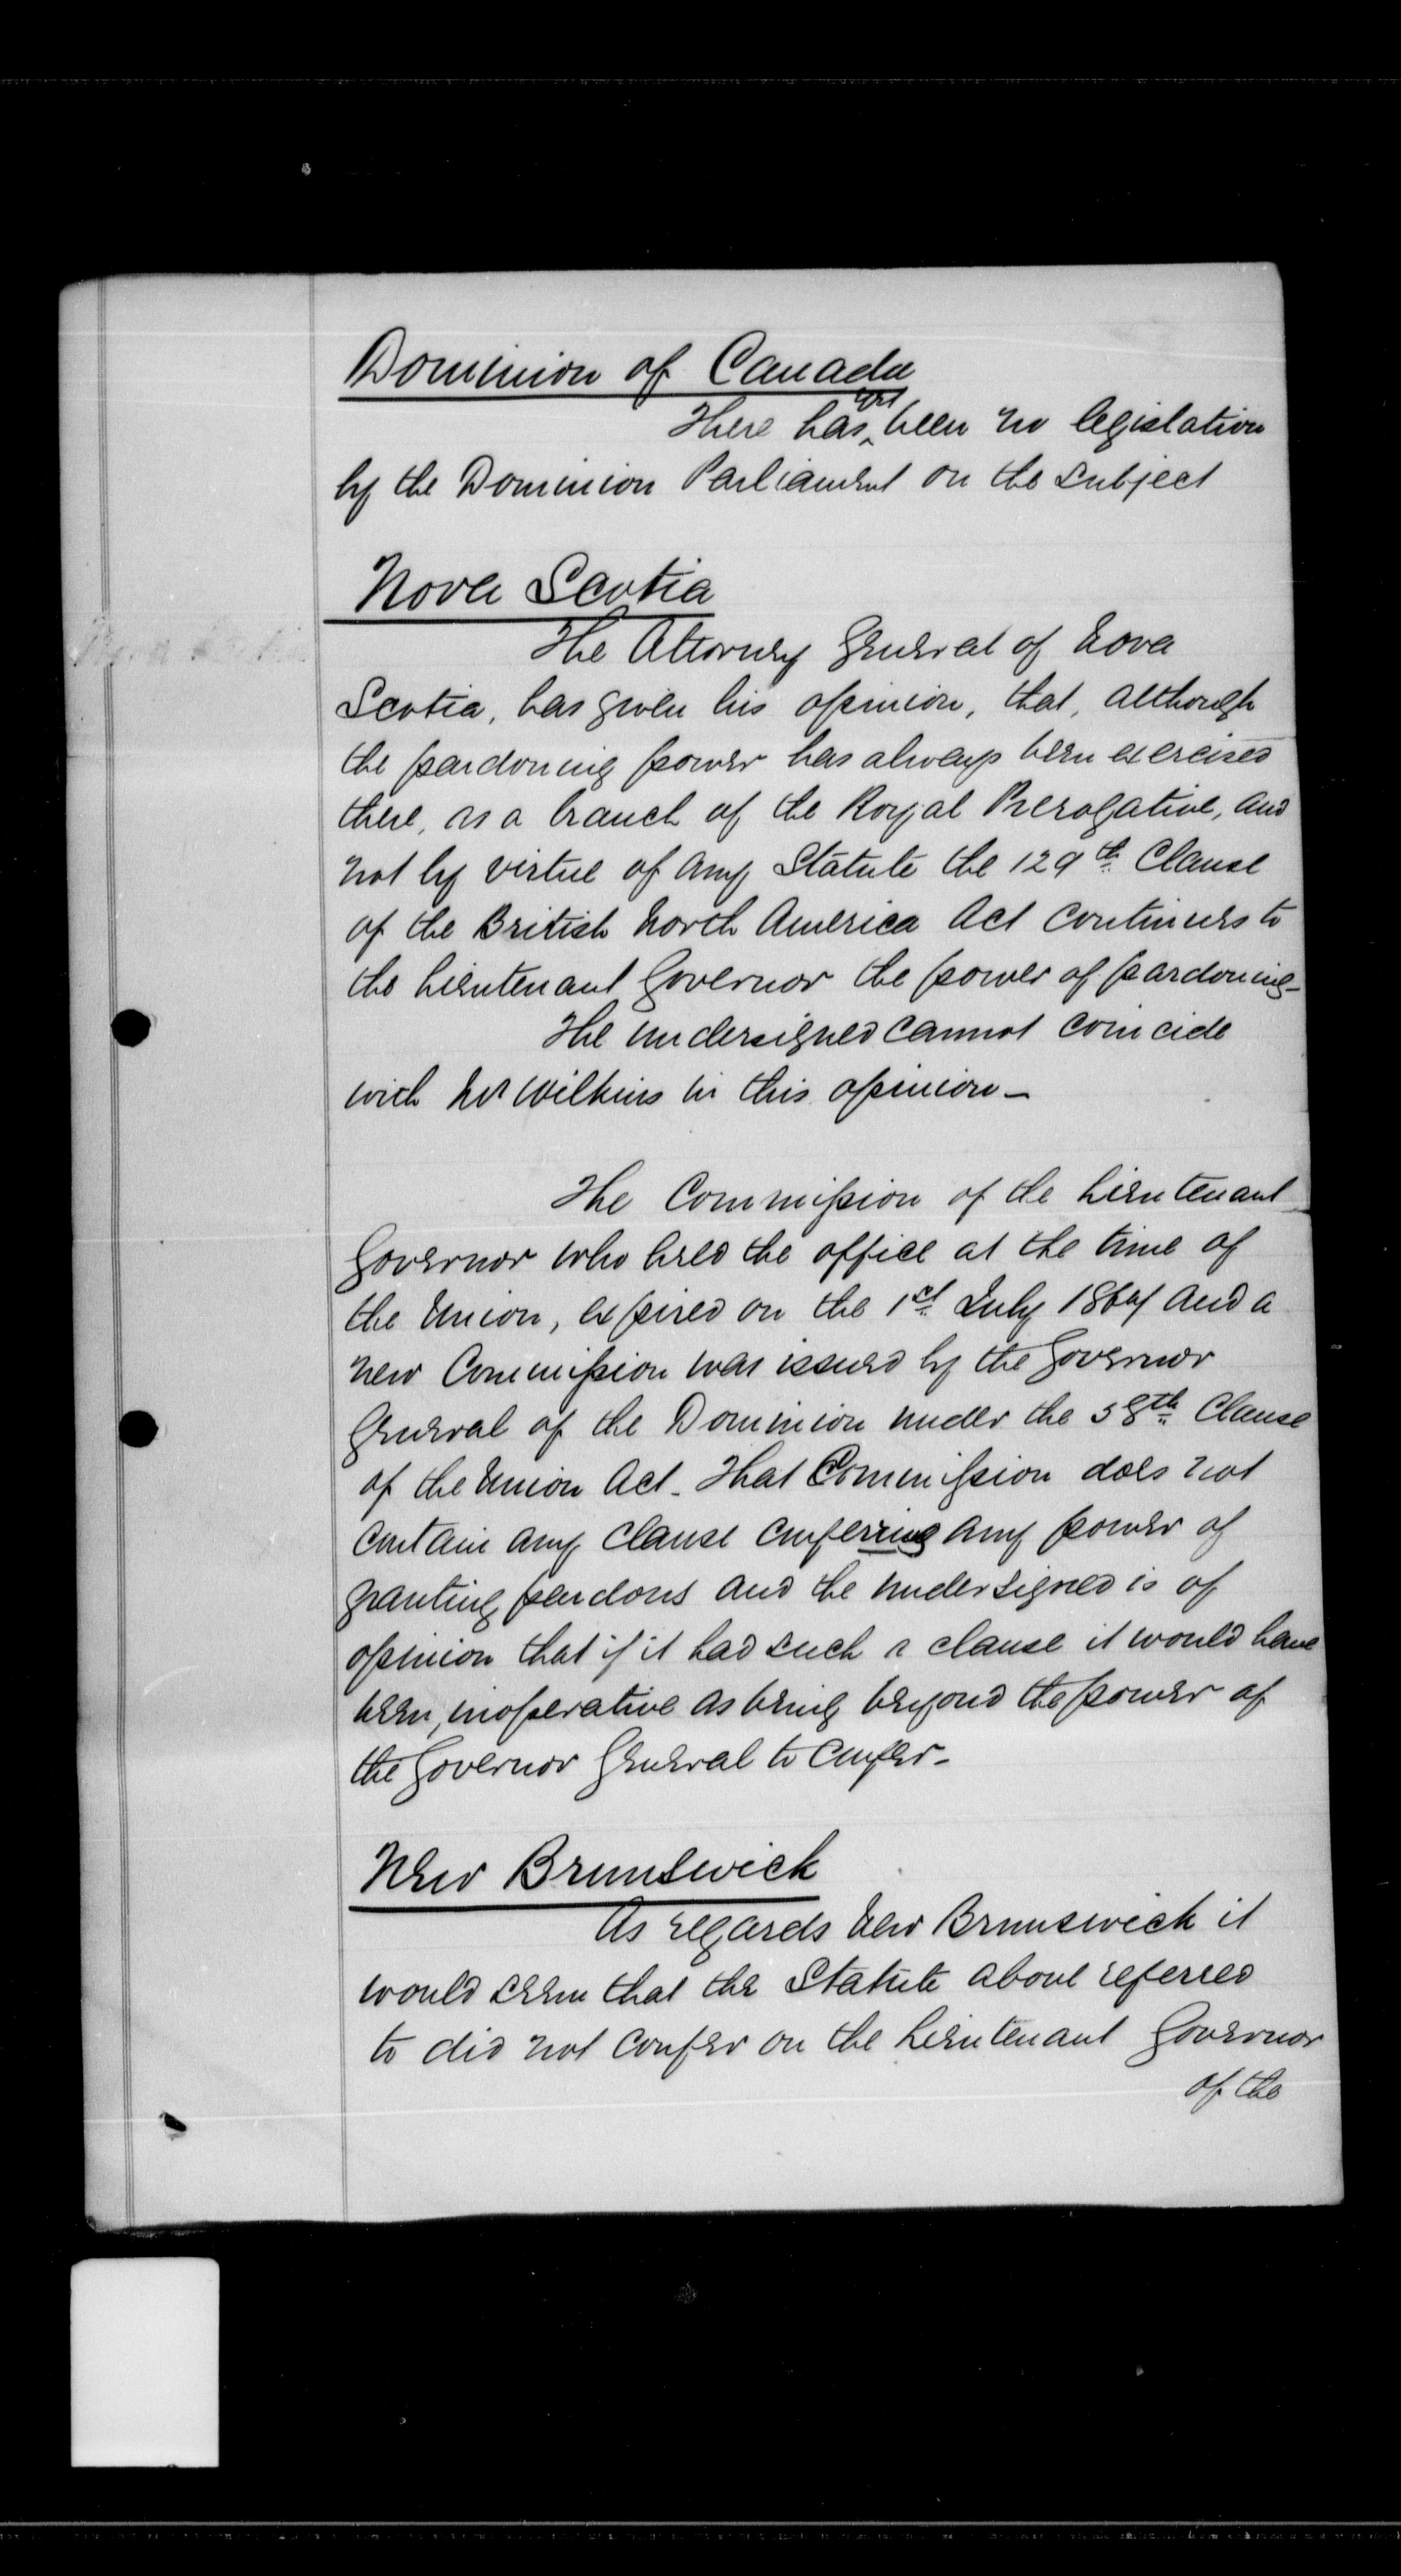 Dominion of Canada
There has yet been no legislation
by the Dominion Parliament on the subject
Nova Scotia
The Attorney General of Nova
Scotia, has given his opinion, that, although
the pardoning power has always been exercised
there, as a branch of the Royal Prerogative, and
not by virtue of any Statute the 129th Clause
of the British North America Act continues to
the Lieutenant Governor the power of pardoning-
The undersigned cannot coincide
with Mr Wilkins in this opinion-
The Commission of the Lieutenant
Governor who held the office at the time of
the Union, expired on the 1st July 1867 and a
new Commission was issued by the Governor
General of the Dominion under the 58th Clause
of the Union Act. That Commission does not
contain any clause conferring any power of
granting pardons and the undersigned is of
opinion that if it had such a clause it would have
been, inoperative as being beyond the power of
the Governor General to confer-
New Brunswick
As regards New Brunswick it
would seem that the Statute above referred
to did not confer on the Lieutenant Governor
of the